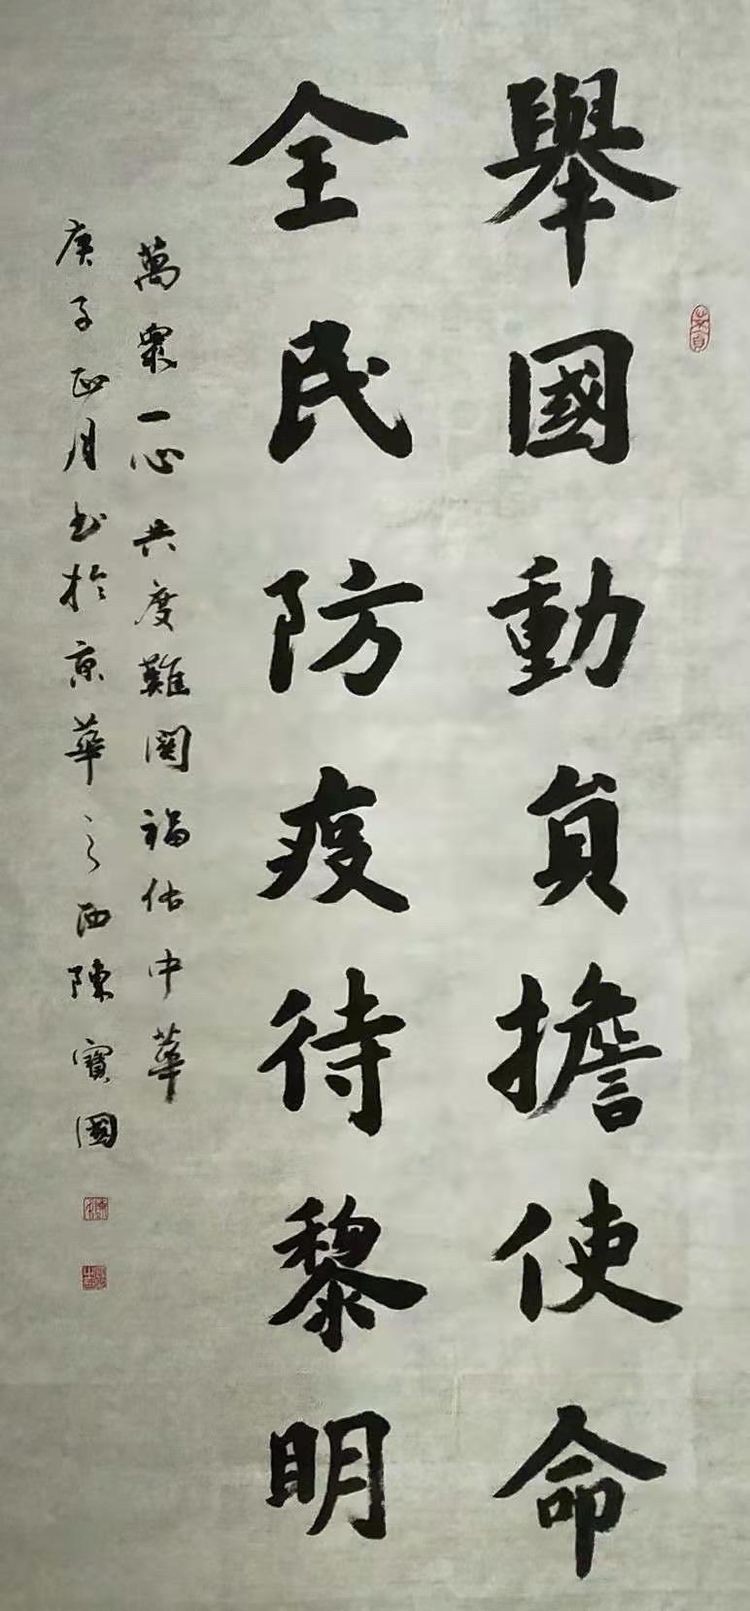 舉國動員擔使命
全民防疫待黎明
萬衆一心共度難関福佑中華
庚子正月書於京華之西陳寶國